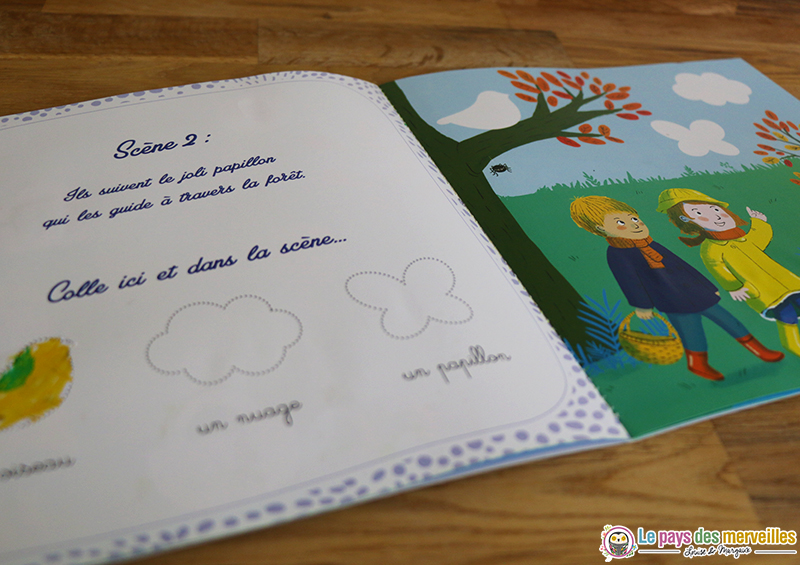 Scène 2 :
Ils suivent le joli papillon
qui les guide à travers la forêt.
Colle ici et dans la scène...
un papillon
un nuage
oiseau
Le pays des merveilles
Louise & Margaux